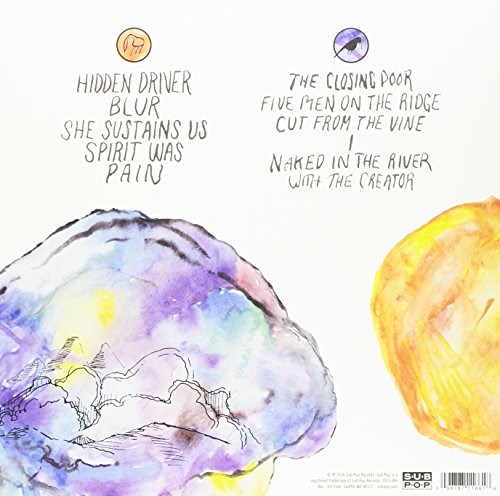 HIDDEN DRIVER
BLUR
SHE SUSTAINS US
SPIRIT WAS
PAIN
THE CLOSING DOOR
FIVE MEN ON THE RIDGE
CUT FROM THE VINE
I
NAKED IN THE RIVER
WITH THE CREATOR
SUB
POP